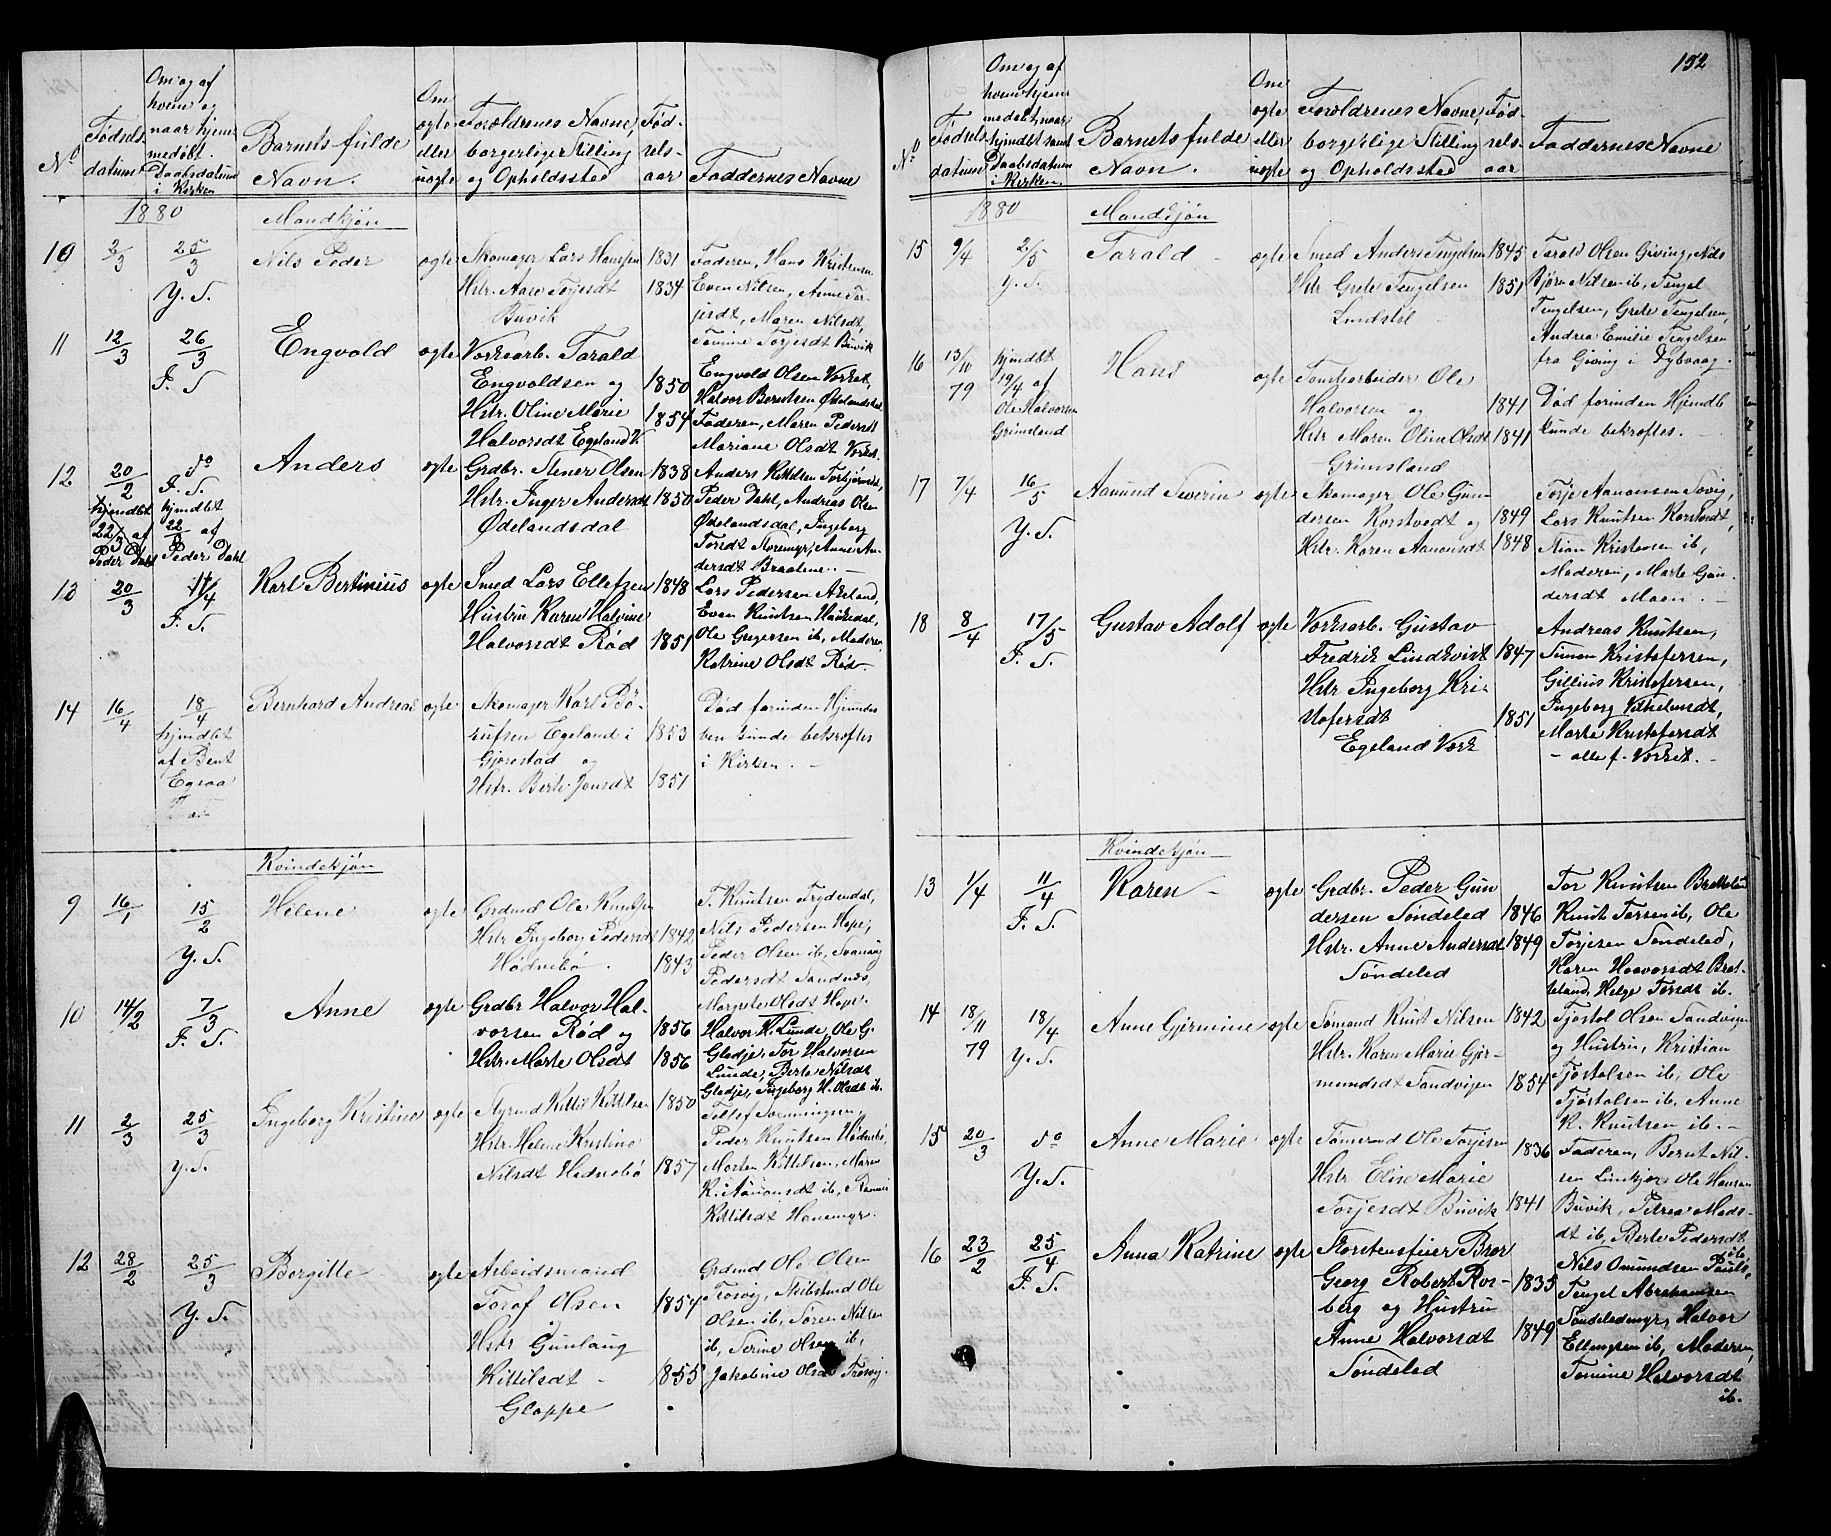 152
No
Fødsels-
datum
Om og af
hvem og
naar hjem-
medøbt.
Daabsdatum
i Kirken
Barnets fulde
Navn.
Om
ægte
eller
uægte
Forældrenes Navne,
borgerlige Stilling
og Opholdssted
Fød-
sels-
aar
Faddernes Navne
1880
Mandkjøn
10
2/3
25/3
Y. S.
Nils Peder
ægte
Skomager Lars Hansen
Hstr. Aase Torjesdt
Buvik
1831
1834
Faderen, Hans Kristensen
Even Nilsen, Anne Tor-
jesdt, Maren Nilsdt,
Tomine Torjesdt Buvik
11
12/3
26/3
I. S.
Engvold
ægte
Værksarb. Tarald
Engvoldsen og
Hstr. Oline Marie
Halvorsdt Egeland V.
1850
1854
Engvold Olsen Værket,
Halvor Berntsen Ødelandsdal
Faderen, Maren Pedersdt
Mariane Olsdt Værket.
12
20/2
hjmdbt
22/3 af
Peder Dahl
do
I. S.
hjmdbt
22/3 af
Peder Dahl
Anders
ægte
Grdbr. Stener Olsen
Hstr. Inger Andersdt
Ødelandsdal
1838
1850
Anders Kittilsen Torbjørnsdal,
Peder Dahl, Andreas Olsen
Ødelandsdal, Ingeborg
Torsdt Støremyr, Anne An-
dersdt Braatene. -
13
20/3
11/4
I. S.
Karl Bertinius
ægte
Smed Lars Ellefsen
Hustru Karen Halvine
Halvorsdt Rød
1848
1851
Lars Pedersen Akeland,
Even Knutsen Haukedal,
Ole Gregersen ib, Moderen
Katrine Olsdt Rød -
14
16/4
18/4
hjmdbt
af Bent
Egsaa
Bernhard Andreas
ægte
Skomager Karl Bø-
rufsen Egeland i
Gjerestad og
Hstr. Berte Jensdt
1853
1851
Død forinden Hjmdaa-
ben kunde bekræftes
i Kirken. -
Kvindekjøn
9
16/1
15/2
Y. S.
Helene
ægte
Grdmd Ole Knutsen
Hstr Ingeborg Pedersdt
Hødnebø.
1842
1843
T. Knutsen Frydendal,
Nils Pedersen Hope,
Peder Olsen ib, Svanaug
Pedersdt Sandnes,
Margrete Olsdt Hope.
10
14/2
7/3
I. S.
Anne
ægte
Grdbr Halvor Hal-
vorsen Rød og
Hstr. Marte Olsdt
1856
1856
Halvor H. Lunde, Ole G.
Gledje, Tor Halvorsen
Lunde, Berte Nilsdt
Gledje, Ingeborg H. Olsdt ib.
11
2/3
25/3
Y. S.
Ingeborg Kristine
ægte
Styrmd Kittil Kittilsen
Hstr. Helene Kristine
Nilsdt Hødnebø
1850
1857
Peder Knutsen Hødnebø,
Morten Kittilsen, Maren
K. Aanonsdt ib,
Kittilsdt Hanemyr.
12
28/2
25/3
Y. S.
Borgitte
ægte
Arbeidsmand
Toraf Olsen
Hstr Gunlaug
Kittilsdt
Gloppe
1854
1855
Grdmd Ole Olsen
Trosvig, Skibsmd Ole
Olsen ib, Søren Nilsen
ib, Serine Olsen ib,
Jakobine Olsdt Trosvig.
No
Fødsels-
datum
Om og af
hvem hjem-
medøbt, naar
hjmdbt samt
Daabsdatum
i Kirken
Barnets fulde
Navn.
Om
ægte
eller
uægte
Forældrenes Navne,
borgerlige Stilling
og Opholdssted
Fød-
sels-
aar
Faddernes Navne
1880
Mandkjøn
15
9/4
2/5
Y. S.
Tarald -
ægte
Smed Anders Tngelsen
Hstr Grete Tengelsen
Lindstøl
1845
1851
Tarald Olsen Giving, Nils
Bjørn Nilsen ib, Tengel
Tengelsen, Grete Tengelsen,
Andrea Emilie Tengelsen
fra Giving i Dybvaag.
16
13/10
79
hjmdbt
19/4 af
Ole Halvorsen
Grimsland
Hans
ægte
Tomtearbeider Ole
Halvorsen og
Hstr Maren Oline Olsdt
Grimsland
1841
1841
Død forinden Hjemdb
kunde bekræftes. -
17
7/4
16/5
Y. S.
Aamund Severin
ægte
Skomager Ole Gun-
dersen Korstvedt og
Hstr. Karen Aanonsdt
1849
1848
Torje Aanonsen Søvig,
Lars Knutsen Korstvedt,
Stian Kristensen ib,
Moderen, Marte Gun-
dersdt Moen. -
18
8/4
17/5
I. S.
Gustav Adolf
ægte
Værksarb. Gustav
Fredrik Lindkvist
Hstr Ingeborg Kri-
stofersdt
Egeland Værk
1847
1851
Andreas Knutsen,
Simon Kristofersen,
Gillius Kristofersen,
Ingeborg Vilhelmsdt,
Marte Kristofersdt
- alle f. Værket. -
Kvindekjøn
13
1/4
11/4
I. S.
Karen -
ægte
Grdbr. Peder Gun-
dersen Søndeled
Hstr. Anne Andersdt
Søndeled
1846
1849
Tor Knutsen Brekkeland
Knut Torsen ib, Ole
Torjesen Søndeled,
Karen Haavorsdt Bræk-
keland, Helge Torsdt ib.
14
18/11
79
18/4
Y. S.
Anne Germine
ægte
Sømand Knut Nilsen
Hstr. Karen Marie Gjer-
mundsdt Sandvigen
1842
1854
Tjøstol Olsen Sandvigen
og Hustru, Kristian
Tjøstolsen ib, Ole
Tjøstolsen ib, Anne
K. Knutsen ib. -
15
20/3
do
Y. S.
Anne Marie
ægte
Tømermd Ole Torjesen
Hstr Elise Marie
Torjesdt Buvik
1836
1841
Faderen, Bernt Nil-
sen Lindkjær Ole Hansen
Buvik, Petrea Mads-
dt ib, Berte Pedersdt
ib.
16
23/2
25/4
I. S.
Anna Katrine
ægte
Skorstensfeier Bror
Georg Robert Ros-
berg og Hustru
Anne Halvorsdt
Søndeled
1835
1849
Nils Omundsen Pauls,
Tengel Abrahamsen
Søndeledmyr, Halvor
Ellingsen ib, Moderen,
Tomine Halvorsdt
ib.